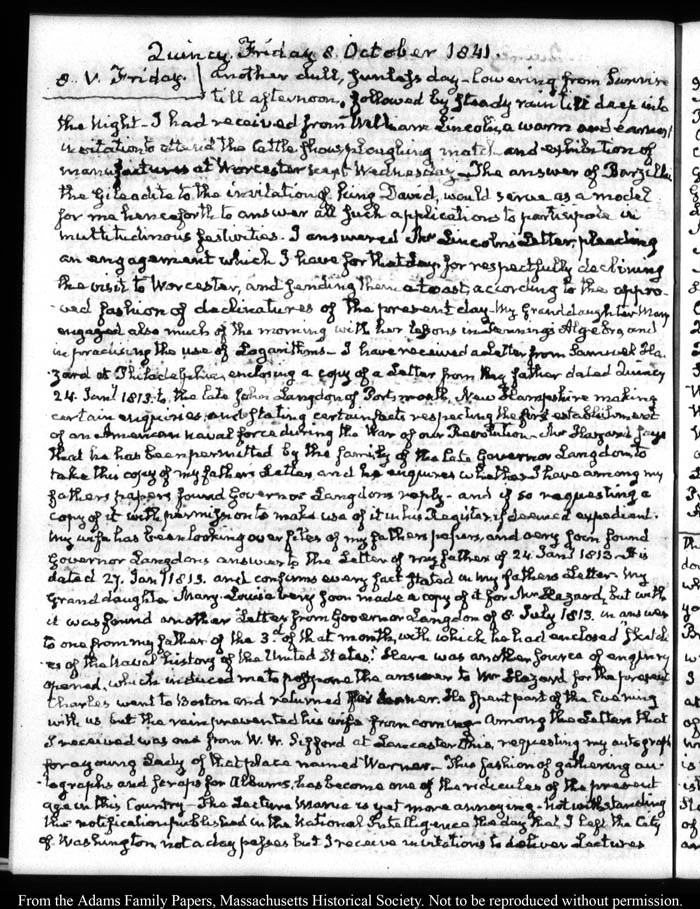 Quincy. Friday 8. October 1841.
8. V. Friday. Another dull, sunless day - lowering from Sunrise
till afternoon, followed by steady rain till deep into
the Night - I had received from William Lincoln, a warm and earnest
invitation to attend the Cattle show, ploughing match and exhibition of
manufactures at Worcester next Wednesday - The answer of Barzillai
the Gileadite to the invitation of King David, would serve as a model
for me henceforth to answer all such applications to participate in
multitudinous festivities. I answered Mr Lincoln's Letter, pleading
an engagement which I have for that day, for respectfully declining
the visit to Worcester, and sending them a toast, according to the appro-
-ved fashion of declinatures of the present day - My Granddaughter Mary
engaged also much of the morning with her lessons in Algebra, and
in practising the use of Logarithms - I have received a Letter from Samuel Ha-
zard at Philadelphia, enclosing a copy of a Letter from my father dated Quincy
24 Jany 1813. to the late John Langdon of Portsmouth, New Hampshire making
certain enquiries, and stating certain facts respecting the first establishment
of an American naval force during the War of our Revolution. Mr Hazard says
that he has been permitted by the family of the late Governor Langdon, to
take this copy of my father's Letter and he enquires whether I have among my
father's papers found Governor Langdon's reply - and if so requesting a
copy of it with permission to make use of it in his Register, if deemed expedient.
My wife has been looking over files of my father's papers, and very soon found
Governor Langdon's answer to the Letter of my father of 24 Jany 1813. It is
dated 27. Jany 1813. and confirms every fact stated in my father's Letter. My
Granddaughter Mary Louisa very soon made a copy of it for Mr Hazard, but with
it was found another Letter from Governor Langdon of 8 July 1813. in answer
to one from my father of the 3d of that month, with which he had enclosed "Sketch-
es of the Naval history of the United States." Here was another source of enquiry
opened, which induced me to postpone the answer to Mr Hazard for the present
Charles went to Boston and returned to dinner. He spent part of the Evening
with us but the rain prevented his wife from coming - Among the Letters that
I received was one from W. W. Sifford at Lancaster Ohio, requesting my autograph
for a young Lady of that place named Warner. This fashion of gathering au-
-tographs and scraps for Albums, has become one of the ridicules of the present
age in this Country - The Lecture Mania is yet more annoying - Notwithstanding
the notification published in the National Intelligencer the day that I left the City
of Washington, not a day passes but I receive invitations to deliver Lectures
From the Adams Family Papers, Massachusetts Historical Society. Not to be reproduced without permission.